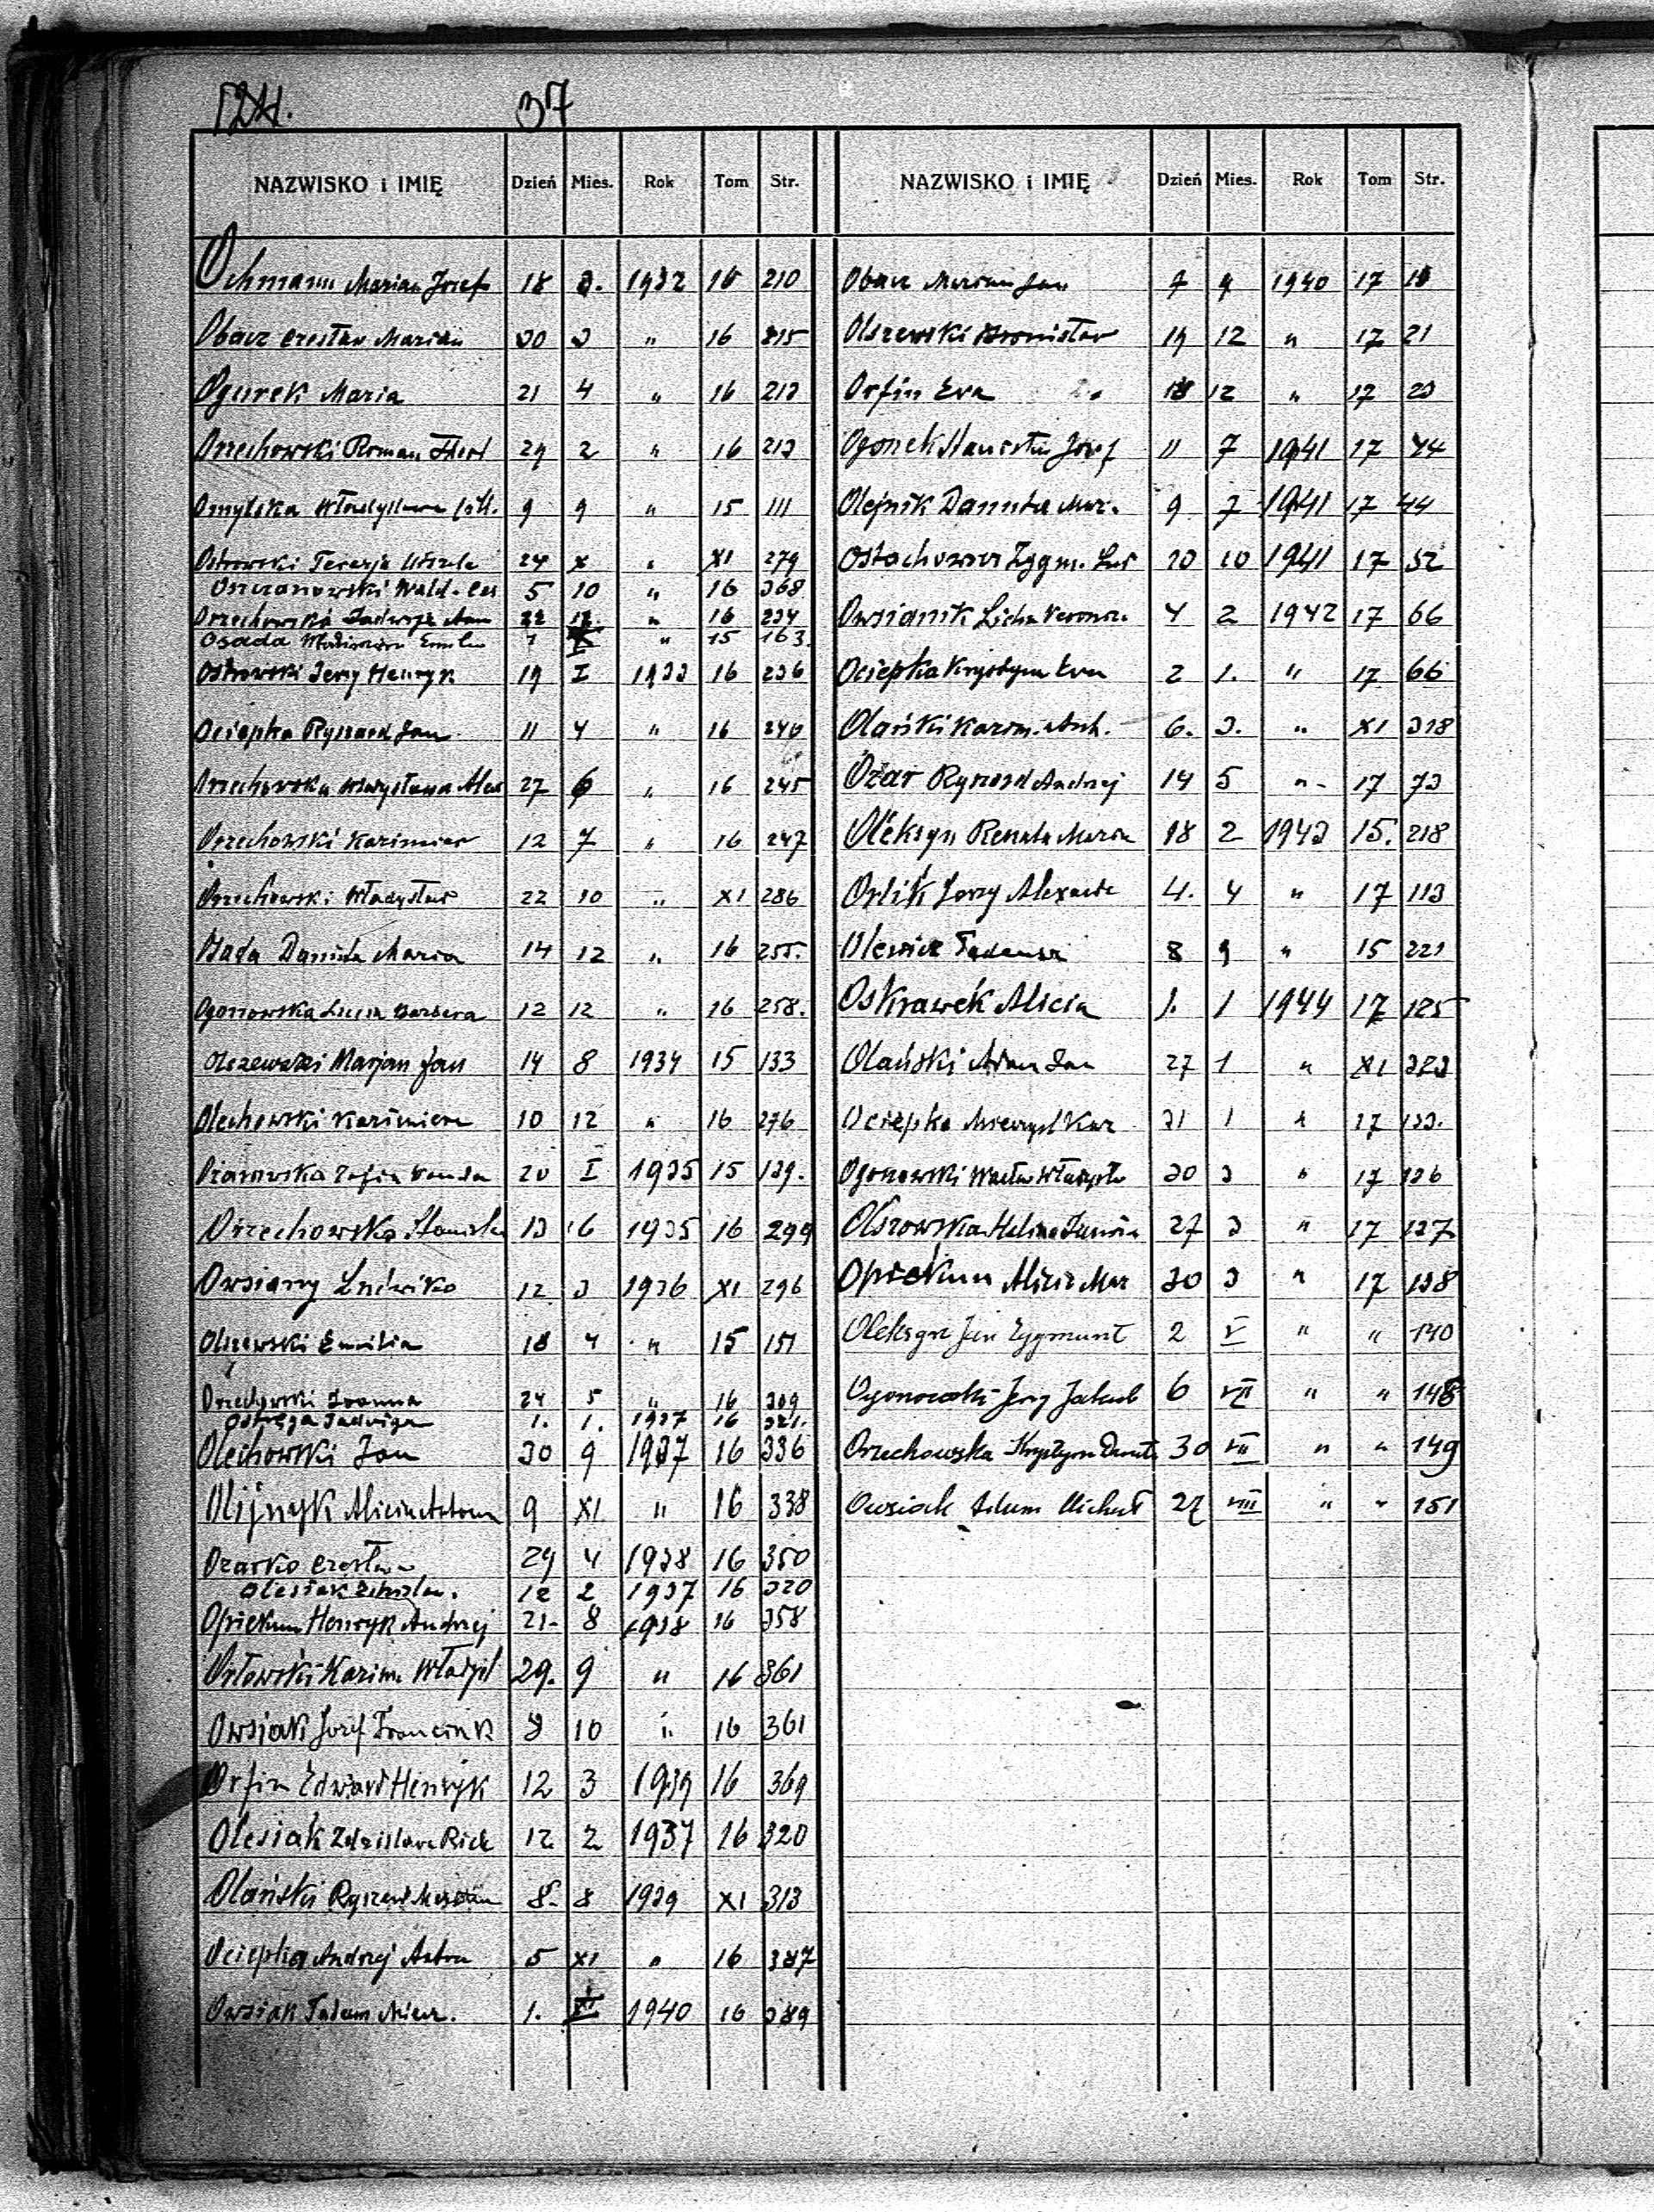 37
NAZWISKO i IMIĘ Dzień Mies. Rok Tom Str.
Ochmann Marian Josef 18 3. 1932 16 210
Obacz Czesław Marian 30 3 " 16 215
Ogurek Maria 21 4 " 16 213
Orzechowski Roman 29 2 " 16 213
Omylska 9 9 " 15 111
Ostrowski Teresja 24 X " XI 279
Oszczanowski Wald. 5 10 " 16 368
Orzechowska Jadwiga 22 12 " 16 234
Osada 1 " 15 163
Ostrowski Jerzy Henryk 19 I 1933 16 236
Ociepka Ryszard Jan 11 4 " 16 240
Orzechowska Władysława Alex 27 6 " 16 245
Orzechowski Kazimierz 12 7 " 16 247
Orzechowski Władysław 22 10 " XI 286
Osada Danuta Maria 14 12 " 16 255.
Ogonowska Lucja Barbara 12 12 " 16 258.
Olszewski Marjan Jan 14 8 1934 15 133
Olechowski Kazimierz 10 12 " 16 276
Ożarowska Zofia Wanda 20 I 1935 15 139.
Orzechowska Stanisła 13 6 1935 16 299
Owsiany Ludwika 12 3 1936 XI 296
Olszewski Emilia 18 4 " 15 151
Orzechowski Joanna 24 5 " 16 309
Ostręga Jadwiga 1. 1. 1937 16 321.
Olechowski Jan 30 9 1937 16 336
Olijnyk Alicia Anton 9 XI " 16 338
Ożarko Czesław 29 4 1938 16 350
Olesiak Zdzisław. 12 2 1937 16 320
Opiekun Henryk Andrzej 21- 8 1938 16 358
Orłowski Kazim. Władysł 29. 9 " 16 361
Owsiak Józef Franciszk 8 10 " 16 361
Orfin Edward Henryk 12 3 1939 16 369
Olesiak Zdzisława 12 2 1937 16 320
Olański Ryszard Marian 8. 8 1939 XI 313
Ociepka Andrzej Anton 5 XI " 16 387
Owsiak Tadeusz Miecz. 1. 1940 16 389
NAZWISKO i IMIĘ Dzień Mies. Rok Tom Str.
Obacz Marian Jan 7 9 1940 17
Olszewski Bronisław 19 12 " 17 21
Orfin Ewa 18 12 " 17 23
Ogonek Stanisław Józef 11 7 1941 17 44
Olejnik Danuta Mar. 9 7 1941 17 44
Ostachowicz Zygm. 20 10 1941 17 52
Owsianik Licha Weronik. 4 2 1942 17 66
Ociepka Krystyna Ewa 2 1. " 17 66
Olański Kazim. Ant. 6. 3. " XI 318
Ożar Ryszard Andrzej 14 5 " 17 73
Oleksyn Renata Maria 18 2 1943 15. 218
Orlik Jerzy Alexande 4. 4 " 17 113
Olewicz Tadeusz 8 9 " 15 221
Oskrawek Alicia 1. 1 1944 17 125
Olański Adam Jan 27 1 " XI 323
Ociepka Mieczysł Kaz 31 1 " 17 133.
Ogonowski Wacław Władysł 30 3 " 17 136
Olszowska Halina 27 3 " 17 137
Opiekun Alicia Mar 30 3 " 17 138
Oleksyn Jan Zygmunt 2 V " " 140
Ogonowski Jerzy Jakub 6 VII " " 148
Orzechowska Krystyna Danuta 30 VII " " 149
Owsiak Adam Michał 27 VIII " " 151